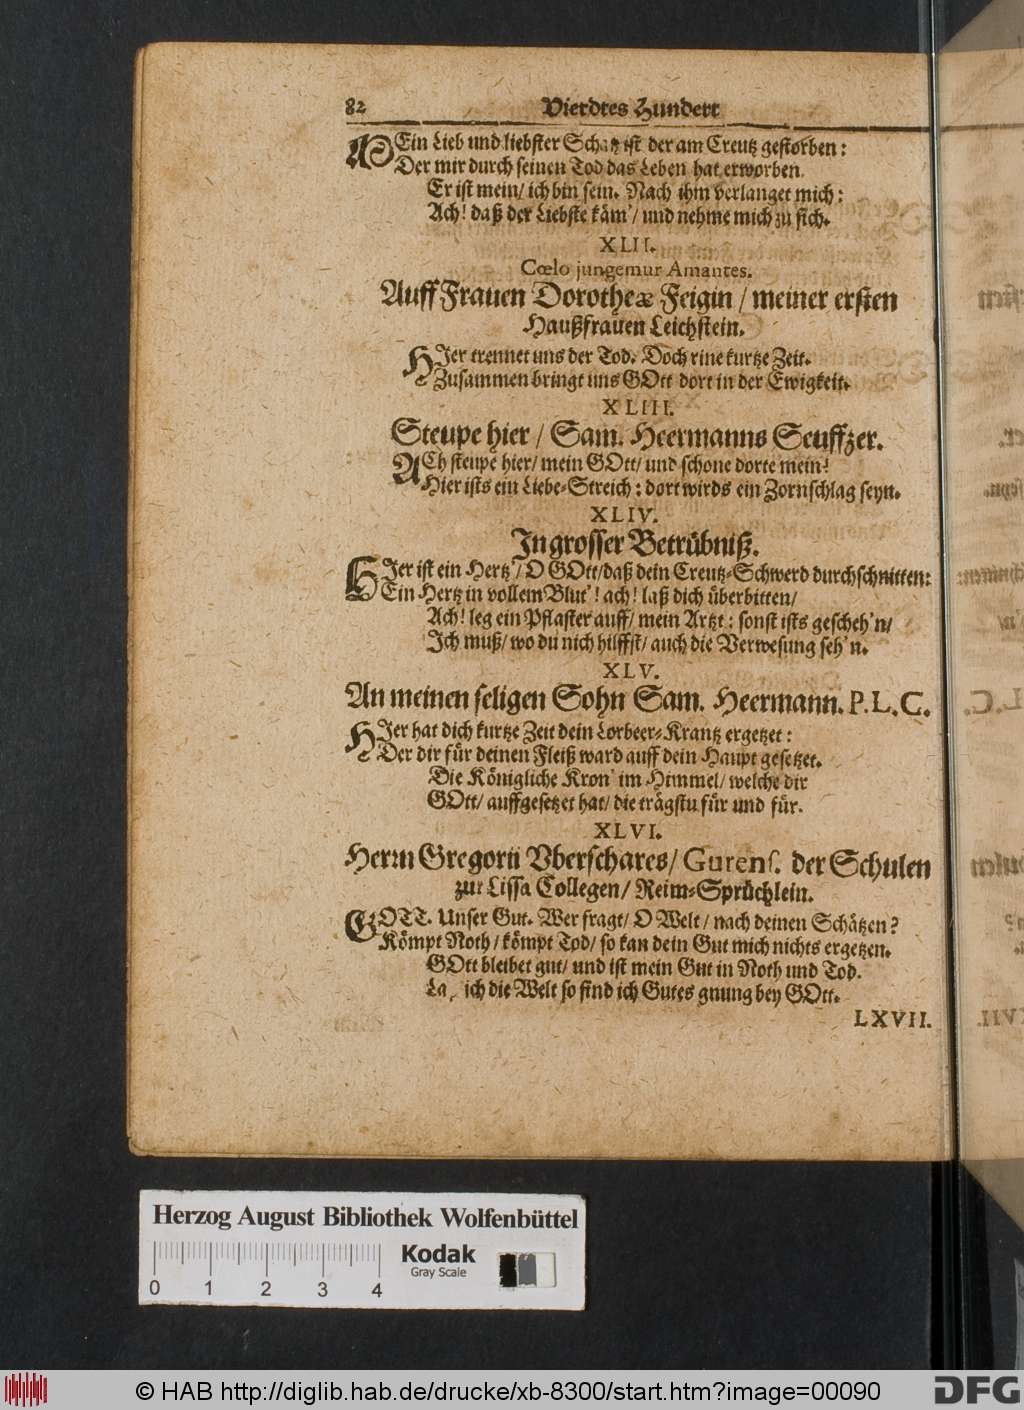 82 Vierdtes Hundert
MEin Lieb und liebster Schatz ist der am Creutz gestorben:
Der mir durch seinen Tod das Leben hat erworben.
Er ist mein/ ich bin sein. Nach ihm verlanget mich:
Ach! daß der Liebste käm'/ und nehme mich zu sich.
XLII.
Cœlo jungemur Amantes.
Auff Frauen Dorotheæ Feigin/ meiner ersten
Haußfrauen Leichstein.
HIer trennet uns der Tod. Doch eine kurtze Zeit.
Zusammen bringt uns GOtt dort in der Ewigkeit.
XLIII.
Steupe hier/ Sam. Heermanns Seuffzer.
ACh steupe hier/ mein GOtt/ und schone dorte mein!
Hier ists ein Liebe-Streich: dort wirds ein Zornschlag seyn.
XLIV.
In grosser Betrübniß.
HIer ist ein Hertz'/ O GOtt/ daß dein Creutz-Schwerd durchschnitten:
Ein Hertz in vollem Blut'! ach! laß dich überbitten/
Ach! leg ein Pflaster auff/ mein Artzt: sonst ists gescheh'n/
Ich muß/ wo du nich hilffst/ auch die Verwesung seh'n.
XLV.
An meinen seligen Sohn Sam. Heermann. P. L. C.
HIer hat dich kurtze Zeit dein Lorbeer-Krantz ergetzet:
Der dir für deinen Fleiß ward auff dein Haupt gesetzet.
Die Königliche Kron' im Himmel/ welche dir
GOtt/ auffgesetzet hat/ die trägstu für und für.
XLVI.
Herrn Gregorii Vberschares/ Gurens. der Schulen
zur Lissa Collegen/ Reim-Sprüchlein.
GOTT. Unser Gut. Wer fragt/ O Welt/ nach deinen Schätzen?
Kömpt Noth/ kömpt Tod/ so kan dein Gut mich nichts ergetzen.
GOtt bleibet gut/ und ist mein Gut in Noth und Tod.
ich die Welt so find ich Gutes gnung bey GOtt.
LXVII.
Herzog August Bibliothek Wolfenbüttel
Kodak
Gray Scale
0 1 2 3 4
© HAB http://diglib.hab.de/drucke/xb-8300/start.htm?image=00090
DFG